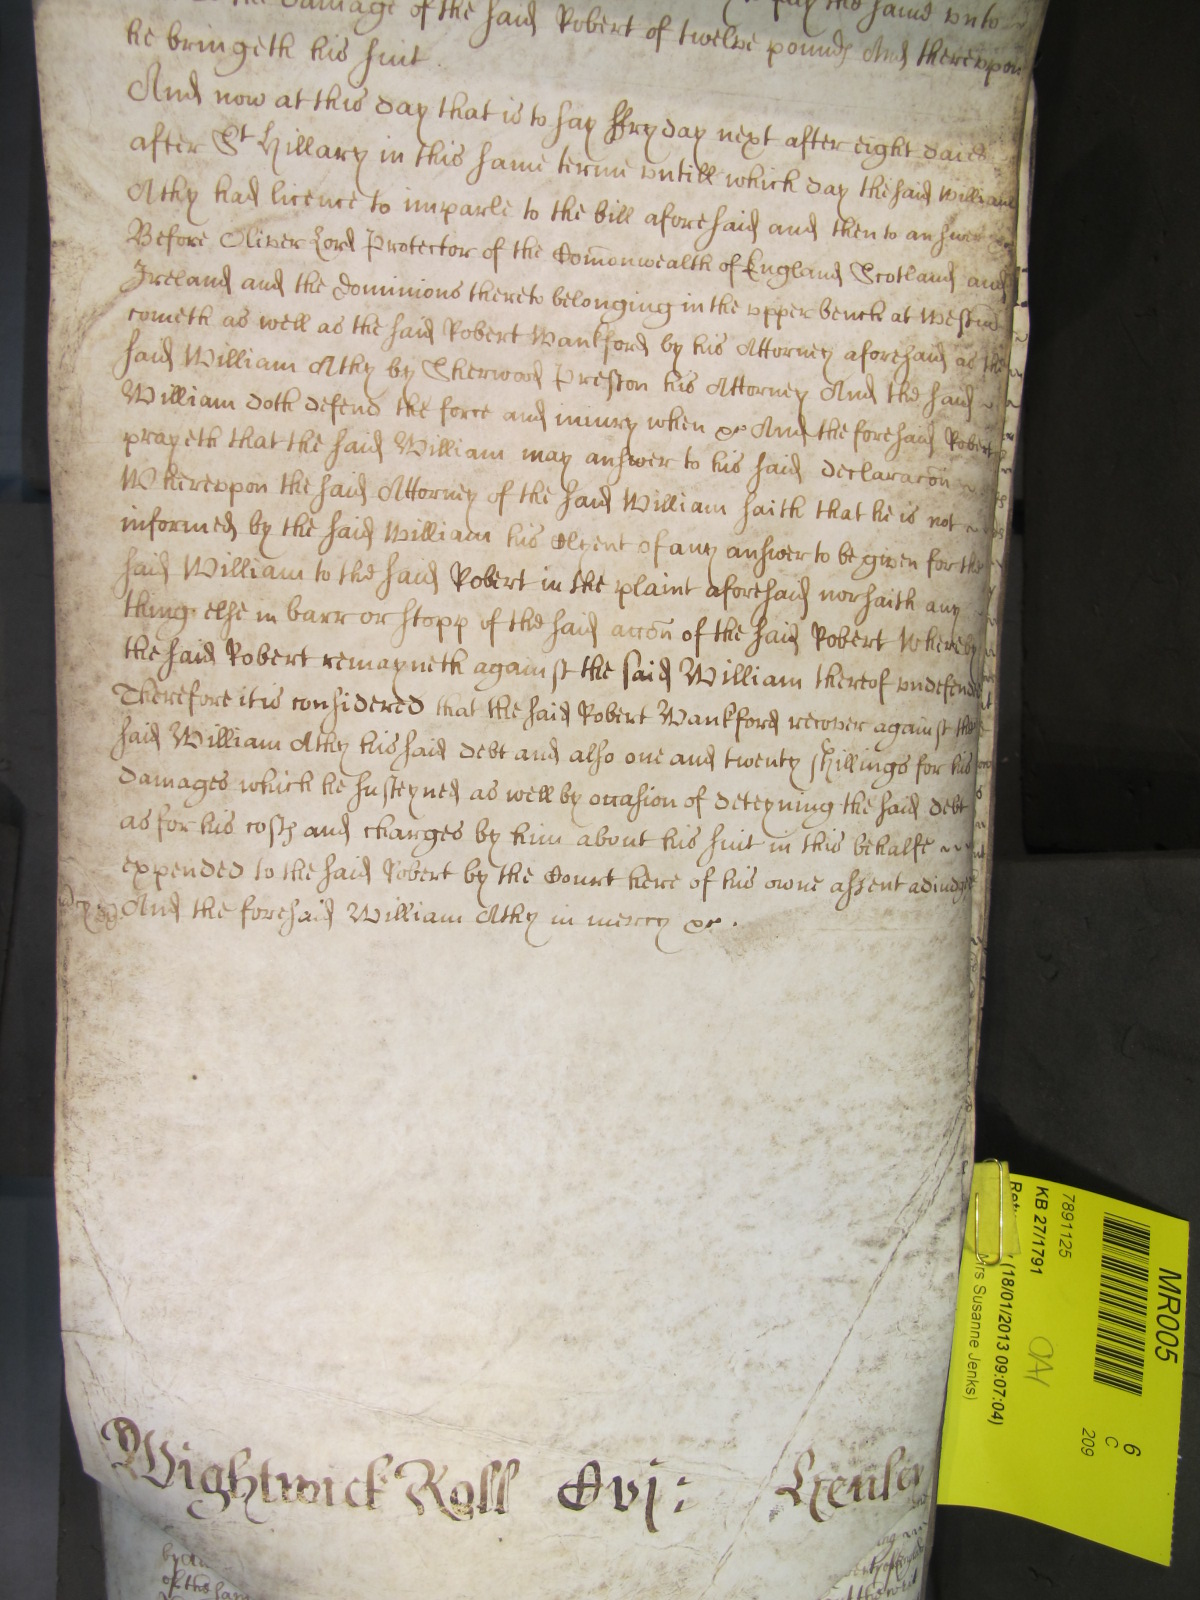 the damage of the said Robert of twelve pounds And therevpon
he bringeth his suit .
And now at this day that is to say ffryday next after eight daies
after St Hillary in this same terme vntill which day the said William
Athy had licence to imparle to the bill aforesaid and then to answer
Before Oliver Lord Protector of the Com̄onwealth of England Scotland and
Ireland and the dominions thereto belonging in the vpper bench at Westm̄
cometh as well as the said Robert Wankford by his Attorney aforesaid as the
said William Athy by Sherwood Preston his Attorney And the said
William doth defend the force and iniury when &c And the foresaid Robert
prayeth that the said William may answer to his said declaracōn
Wherevpon the said Attorney of the said William saith that he is not
informed by the said William his Clyent of any answer to be given for the
said William to the said Robert in the plaint aforesaid nor saith any
thing else in barr or stopp of the said accōn of the said Robert Whereby
the said Robert remayneth against the said William thereof vndefend
Therefore it is considered that the said Robert Wankford recover against the
said William Athy his said debt and also one and twenty shillings for his
damages which he susteyned as well by occasion of deteyning the said debt
as for his costs and charges by him about his suit in this behalfe
expended to the said Robert by the Court here of his owne assent adiudged
And the foresaid William Athy in mercy &c .
Wightwick Roll Cvj:
MR005
6
C
209
7891125
KB 27/1791
(18/01/2013 09:07:04)
Mrs Susanne Jenks)